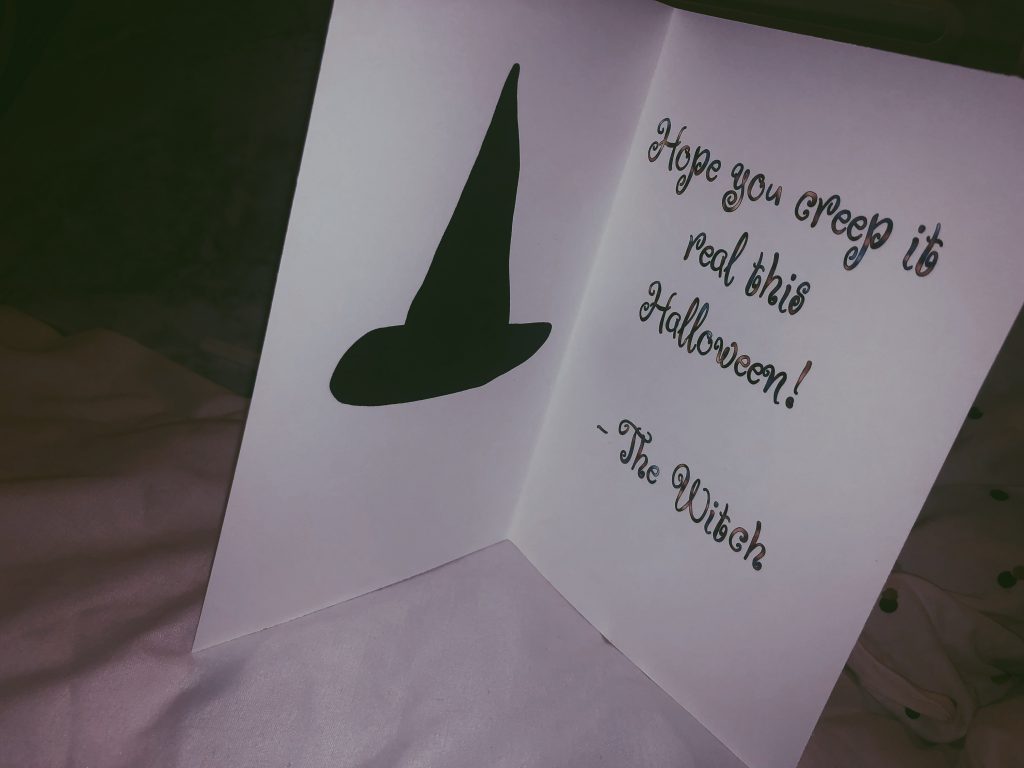 Hope you creep it
real this
Halloween!
~The Witch